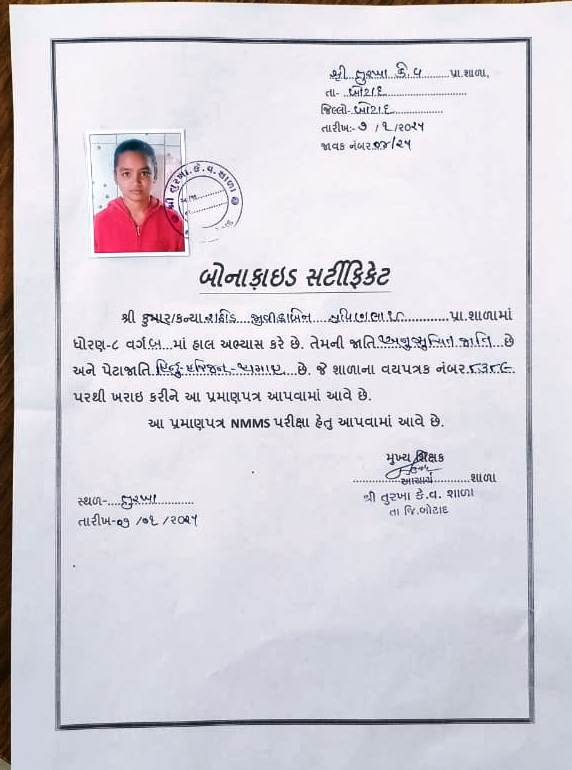 શ્રી તુરખા કે.વ પ્રા.શાળા,
તા- બોટાદ
જિલ્લો- બોટાદ
તારીખ:- ૭ /૧ /૨૦૨૫
જાવક નંબર. /૨૫
શ્રી તુરખા.કે.વ.શાળા
બોનાફાઇડ સર્ટીફિકેટ
શ્રી કુમાર/કન્યા રાઠોડ પ્રા.શાળામાં
ધોરણ-૮ વર્ગ બ માં હાલ અભ્યાસ કરે છે. તેમની જાતિ અનુસુચિત જાતિ છે
અને પેટાજાતિ હિન્દુ-હરિજન-ચમાર છે. જે શાળાના વયપત્રક નંબર. ૬૩૬૯.
પરથી ખરાઇ કરીને આ પ્રમાણપત્ર આપવામાં આવે છે.
આ પ્રમાણપત્ર NMMS પરીક્ષા હેતુ આપવામાં આવે છે.
મુખ્ય શિક્ષક
આચાર્ય શાળા
શ્રી તુરખા કે.વ. શાળા
તા જિ.બોટાદ
સ્થળ- તુરખા
તારીખ-૦૭ /૦૧ /૨૦૨૫